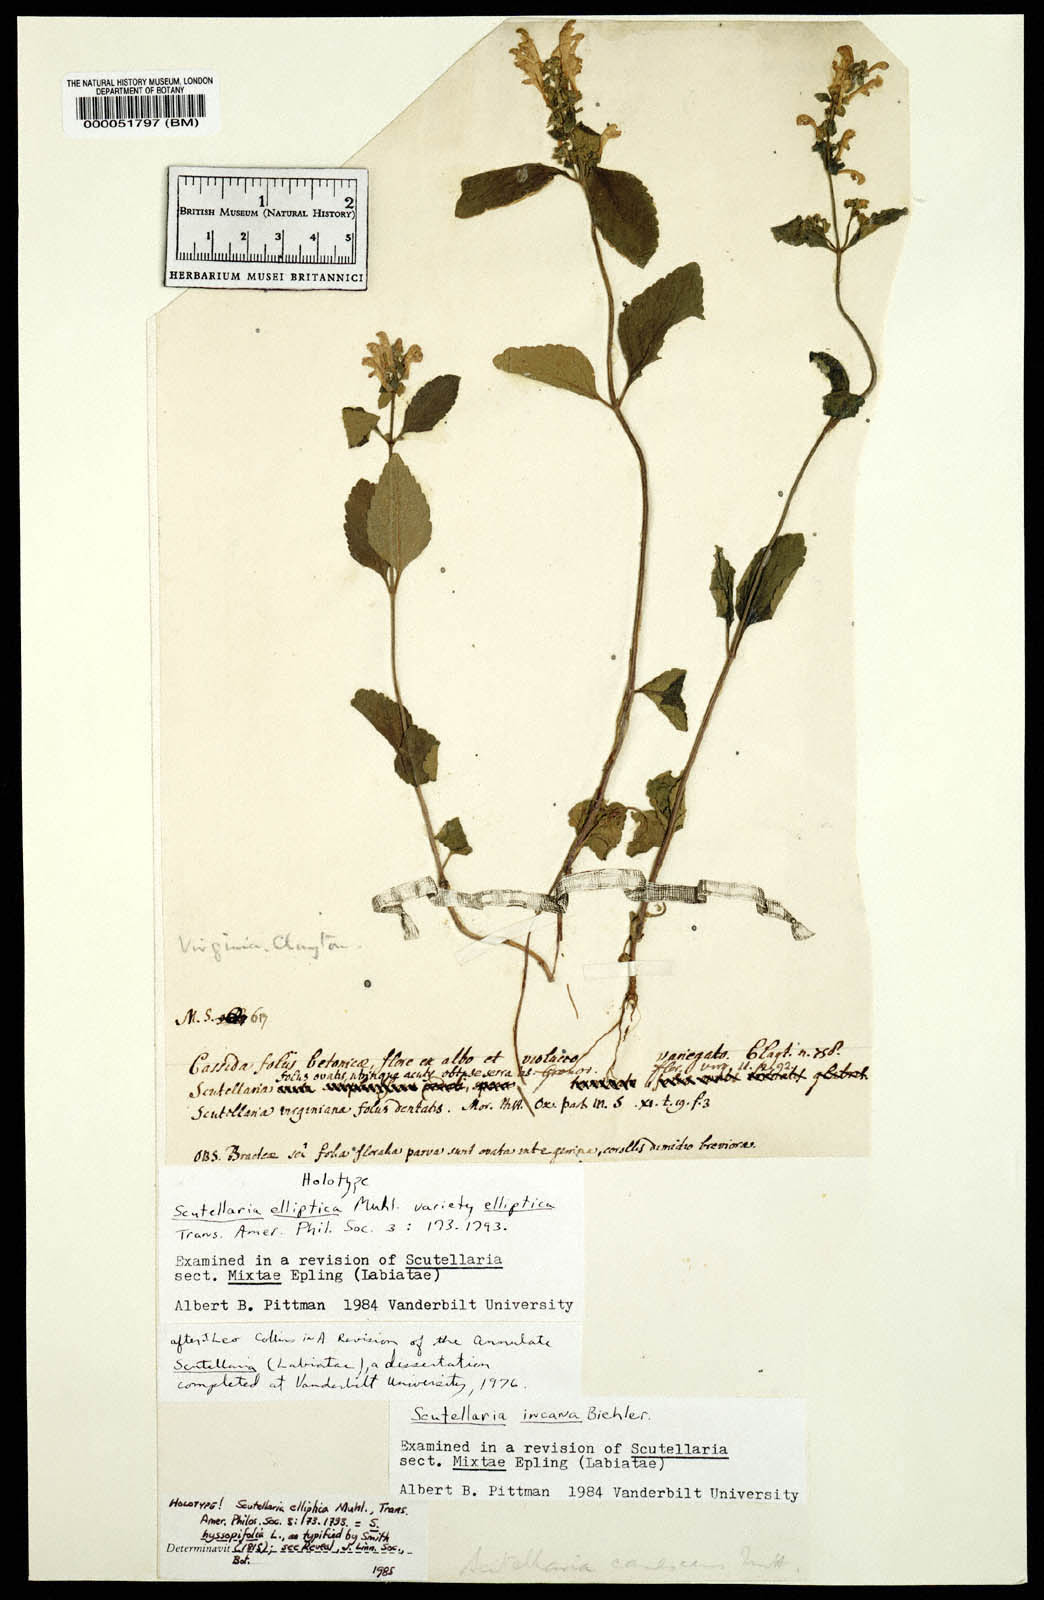 THE NATURAL HISTORY MUSEUM, LONDON
DEPARTMENT OF BOTANY
000051797 (BM)
1 2
BRITISH MUSEUM (NATURAL HISTORY)
1 2 3 4 5
HERBARIUM MUSEI BRITANNICI
Virginia. Clayton.
M. S. 617
Cassida foliis betonicæ, flore ex albo et violaceo variegato. Clayt. n. 258.
foliis ovatis utrinque acutis obtuse serratis Gronov. flor. virg. II. p. 92
Scutellaria
Scutellaria virginiana foliis dentatis. Mor. hist. Ox. part III. S. XI. t. 19. f. 3
OBS. Bracteæ seu folia floralia parva sunt ovata integerrima, corollis dimidio breviora.
Holotype
Scutellaria elliptica Muhl. variety elliptica
Trans. Amer. Phil. Soc. 3: 173. 1793.
Examined in a revision of Scutellaria
sect. Mixtae Epling (Labiatae)
Albert B. Pittman 1984 Vanderbilt University
after J Leo Collins in A Revision of the Annulate
Scutellaria (Labiatae), a dissertation
completed at Vanderbilt University, 1976.
Scutellaria incana Biehler.
Examined in a revision of Scutellaria
sect. Mixtae Epling (Labiatae)
Albert B. Pittman 1984 Vanderbilt University
HOLOTYPE! Scutellaria elliptica Muhl., Trans.
Amer. Philos. Soc. 3: 173. 1793. = S.
hyssopifolia L., as typified by Smith
Determinavit (1815); see Reveal, J. Linn. Soc.,
Bot.
1985
Scutellaria canescens Nutt.